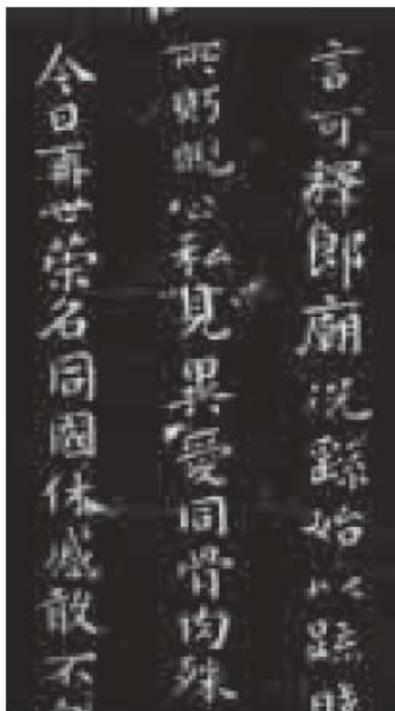 言可擇郎廟況繇始以踈
所眄睨公私見異愛同骨肉殊
今日再世榮名同國休慼敢不